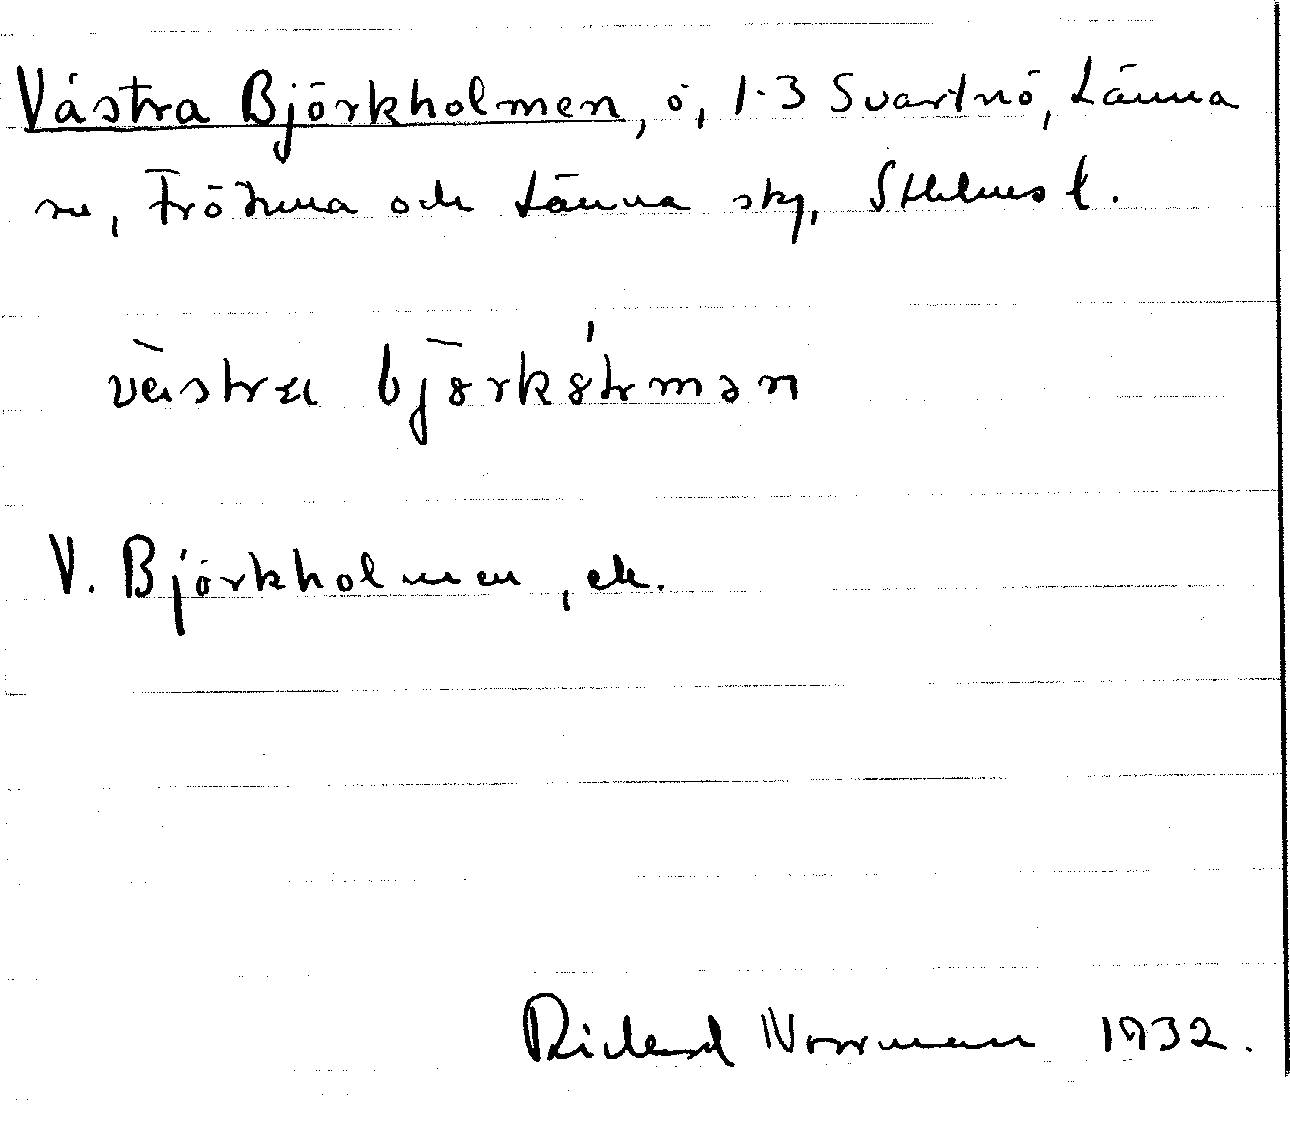 Västra Björkholmen, ö, 1-3 Svartnö, Länna
sn, Frötuna och Länna skg, Sthlms l.
västra björkhɷlmən
V. Björkholmen, ek.
Richard Norrman 1932.